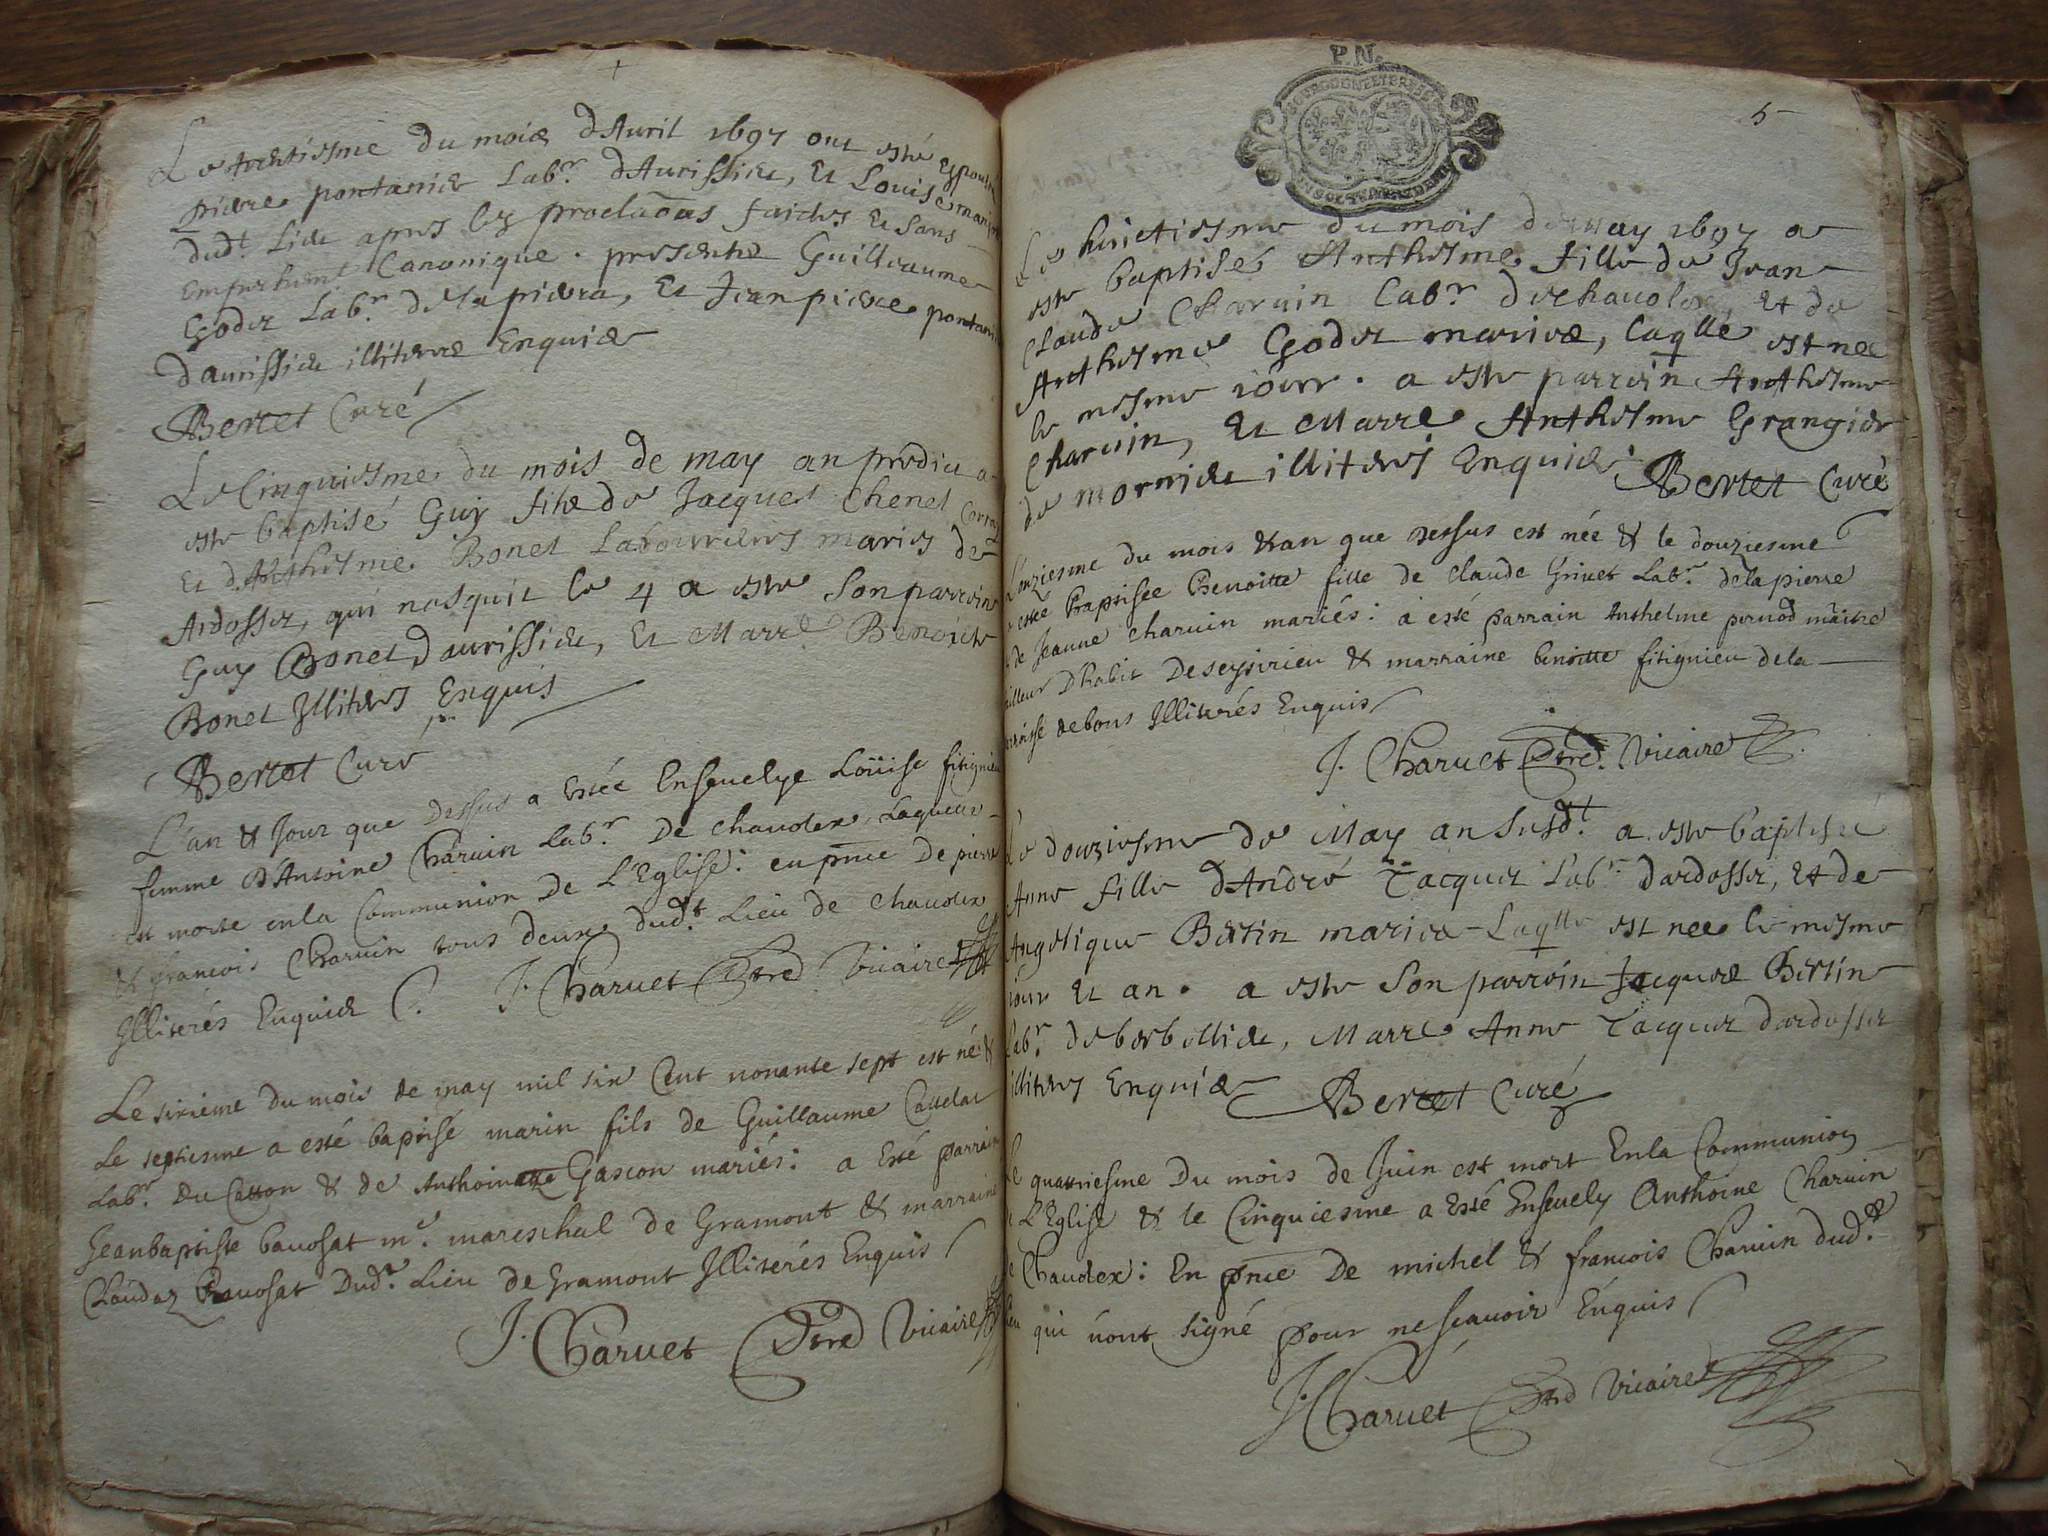 Le trentiesme du mois d'Auril 1697 ont esté Espousés
pierre pontannier Lab.r d'Aurissieu, Et Louise
dud.t Lieu apres les proclaōns faictes Et sans
Empeschem.t Canonique. presents Guillaume
Godet Lab.r de la pierra, Et Jean pierre pontannier
d'aurissieu illiteres Enquis
Bertet Curé
Le Cinquiesme du mois de may an predict a
este baptisé Guy fils de Jacques Chenet
Et d'Anthelme Bonet Laboureurs maries de
Ardosset, qui nasquit le 4 a este Son parrein
Guy Bonet d'aurissieu, Et Marre Benoiste
Bonet Illiteres Enquis
Bertet Curé
L'an & Jour que dessus a estée Enseuelye Loüise fitignieu
femme D'Antoine Charuin Lab.r De Chauolex Laquelle
est morte en la Communion de L'Eglise: en pn̄ce De pierre
& francois Charuin tous deux dud.t Lieu de Chauolex
Illiterés Enquis J. Charuet Ptre Vicaire
Le sixieme du mois de may mil six Cent nonante sept est né &
Le septiesme a esté baptisé marin fils de Guillaume Cattelat
Lab.r du Catton & de Anthoinette Gascon mariés: a Esté parrain
Jeanbaptiste bauosat m.e mareschal de Gramont & marraine
Claudaz Bauosat Dud.t Lieu de Gramont Illiterés Enquis
J. Charuet Ptre Vicaire
P.N.
BOURGOGNE ET BRESSE
5
Le huictiesme du mois de may 1697 a
este baptisée Anthelme fille de Jean
Claude Charuin Lab.r de chauolex, et de
Anthelme Godet mariés, laq̄lle est nee
le mesme iour. a este parrein Anthelme
Charuin, Et Marre Anthelme Grangier
de mornieu illiteres Enquis Bertet Curé
L'onziesme du mois & an que dessus est née & le douziesme
a estée Baptisée Benoitte fille de Claude Griuet Lab.r dela pierre
& de Jeanne Charuin mariés: a esté parrain Anthelme pernod maitre
tailleur D'habit De seysirieu & marraine benoitte fitignieu dela
parroisse debons Illiterés Enquis
J. Charuet Ptre. Vicaire
Le douziesme de May an Susd.t a este baptisée
Anne fille d'André Jacquet Lab.r d'ardosset, Et de
Angelique Bertin maries Laq̄lle est nee le mesme
iour Et an. a este Son parrein Jacques Bertin
Lab.r de berbellieu, Marre Anne Jacquet d'ardosset
illiteres Enquis Bertet Curé
Le quattriesme Du mois de Juin est mort Enla Communion
de L'Eglise & le Cinquiesme a esté Enseuely Anthoine Charuin
de Chauolex: En pn̄ce De michel & francois Charuin dud.t
Lieu qui n'ont signé pour ne scauoir Enquis
J. Charuet Ptre Vicaire